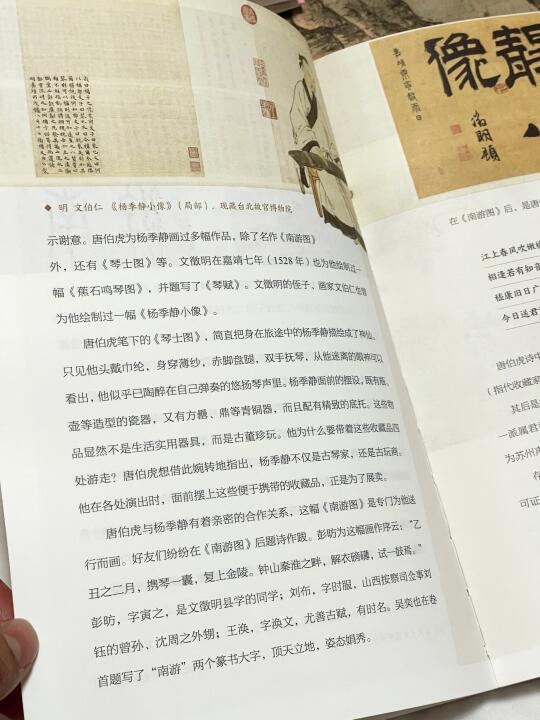 明 文伯仁 《杨季静小像》（局部），现藏台北故宫博物院
示谢意。唐伯虎为杨季静画过多幅作品，除了名作《南游图》
外，还有《琴士图》等。文徵明在嘉靖七年（1528年）也为他绘制过一
幅《蕉石鸣琴图》，并题写了《琴赋》。文徵明的侄子、画家文伯仁也曾
为他绘制过一幅《杨季静小像》。
唐伯虎笔下的《琴士图》，简直把身在旅途中的杨季静描绘成了神仙。
只见他头戴巾纶，身穿薄纱，赤脚盘腿，双手抚琴，从他迷离的眼神可以
看出，他似乎已陶醉在自己弹奏的悠扬琴声里。杨季静面前的摆设，既有瓶、
壶等造型的瓷器，又有方罍、鼎等青铜器，而且配有精致的底托。这些物
品显然不是生活实用器具，而是古董珍玩。他为什么要带着这些收藏品四
处游走？唐伯虎想借此婉转地指出，杨季静不仅是古琴家，还是古玩商。
他在各处演出时，面前摆上这些便于携带的收藏品，正是为了展卖。
唐伯虎与杨季静有着亲密的合作关系，这幅《南游图》是专门为他送
行而画。好友们纷纷在《南游图》后题诗作跋。彭昉为这幅画作序云：“乙
丑之二月，携琴一囊，复上金陵。钟山秦淮之畔，解衣磅礴，试一鼓焉。”
彭昉，字寅之，是文徵明县学的同学；刘布，字时服，山西按察司佥事刘
钰的曾孙、沈周之外甥；王涣，字涣文，尤善古赋，有时名。吴奕也在卷
首题写了“南游”两个篆书大字，顶天立地，姿态娟秀。
在《南游图》后，是唐伯
江上春风吹嫩榆
相逢若有知音
嵇康旧日广
今日送君
唐伯虎诗中
（指代收藏家
其后是
一派属君
为苏州声
存
可证